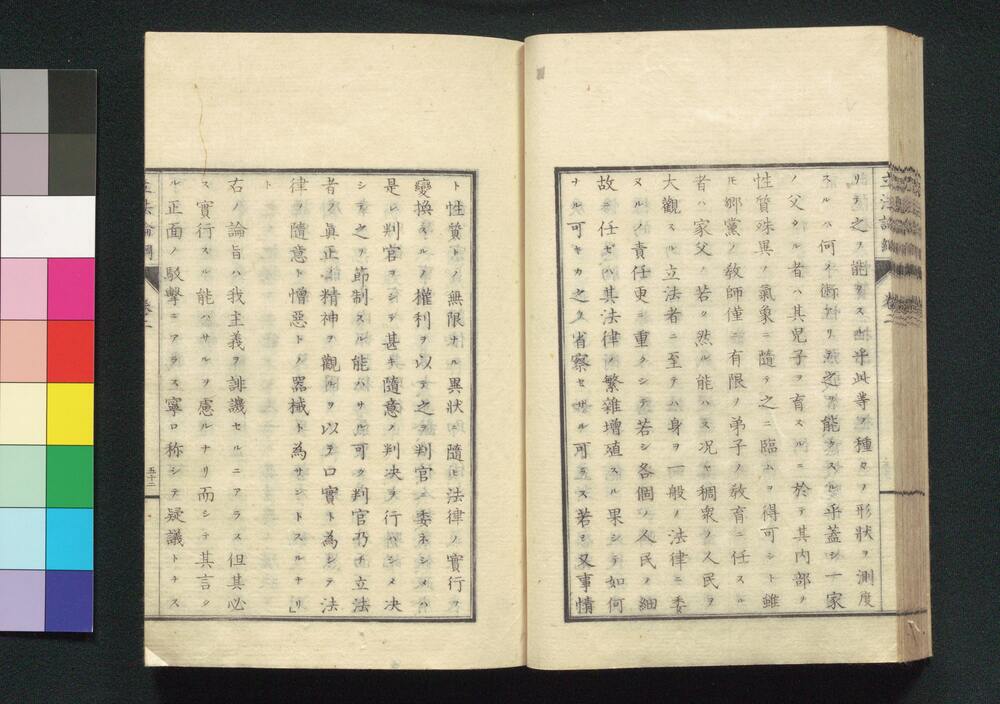 リテ之ヲ能クス可キ乎此等ノ種々ノ形狀ヲ測度
スルハ何ノ術アリテ之ヲ能クスル乎蓋シ一家
ノ父タル者ハ其兒子ヲ育スルニ於テ其內部ノ
性質殊異ノ氣象ニ隨テ之ニ臨ムヲ得可シト雖
モ鄉黨ノ敎師僅ニ有限ノ弟子ノ敎育ニ任スル
者ハ家父ノ若ク然ル能ハス况ヤ稠衆ノ人民ヲ
大觀スル立法者ニ至テハ身ヲ一般ノ法律ニ委
ヌルノ責任更ニ重クシテ若シ各個ノ人民ノ細
故ニ任セハ其法律ノ繁雜增殖スル果シテ如何
ナル可キカ之ヲ省察セサル可ラス若シ又事情
ト性質トノ無限ナル異狀ニ隨ヒ法律ノ實行ヲ
變換スルノ權利ヲ以テ之ヲ判官ニ委ネシメハ
是レ判官ヲシテ甚キ隨意ノ判決ヲ行ハシメ決
シテ之ヲ節制スル能ハサル可ク判官乃チ立法
者ノ眞正ノ精神ヲ觀ルヲ以テ口實ト為シテ法
律ヲ隨意ト憎惡トノ器械ト為サントスルナリ」
ト
右ノ論旨ハ我主義ヲ誹譏セルニアラス但其必
ス實行スル能ハサルヲ慮ルナリ而シテ其言タ
ル正面ノ駁擊ニアラス寧ロ称シテ疑議トナス
立法論綱 卷二 五十二